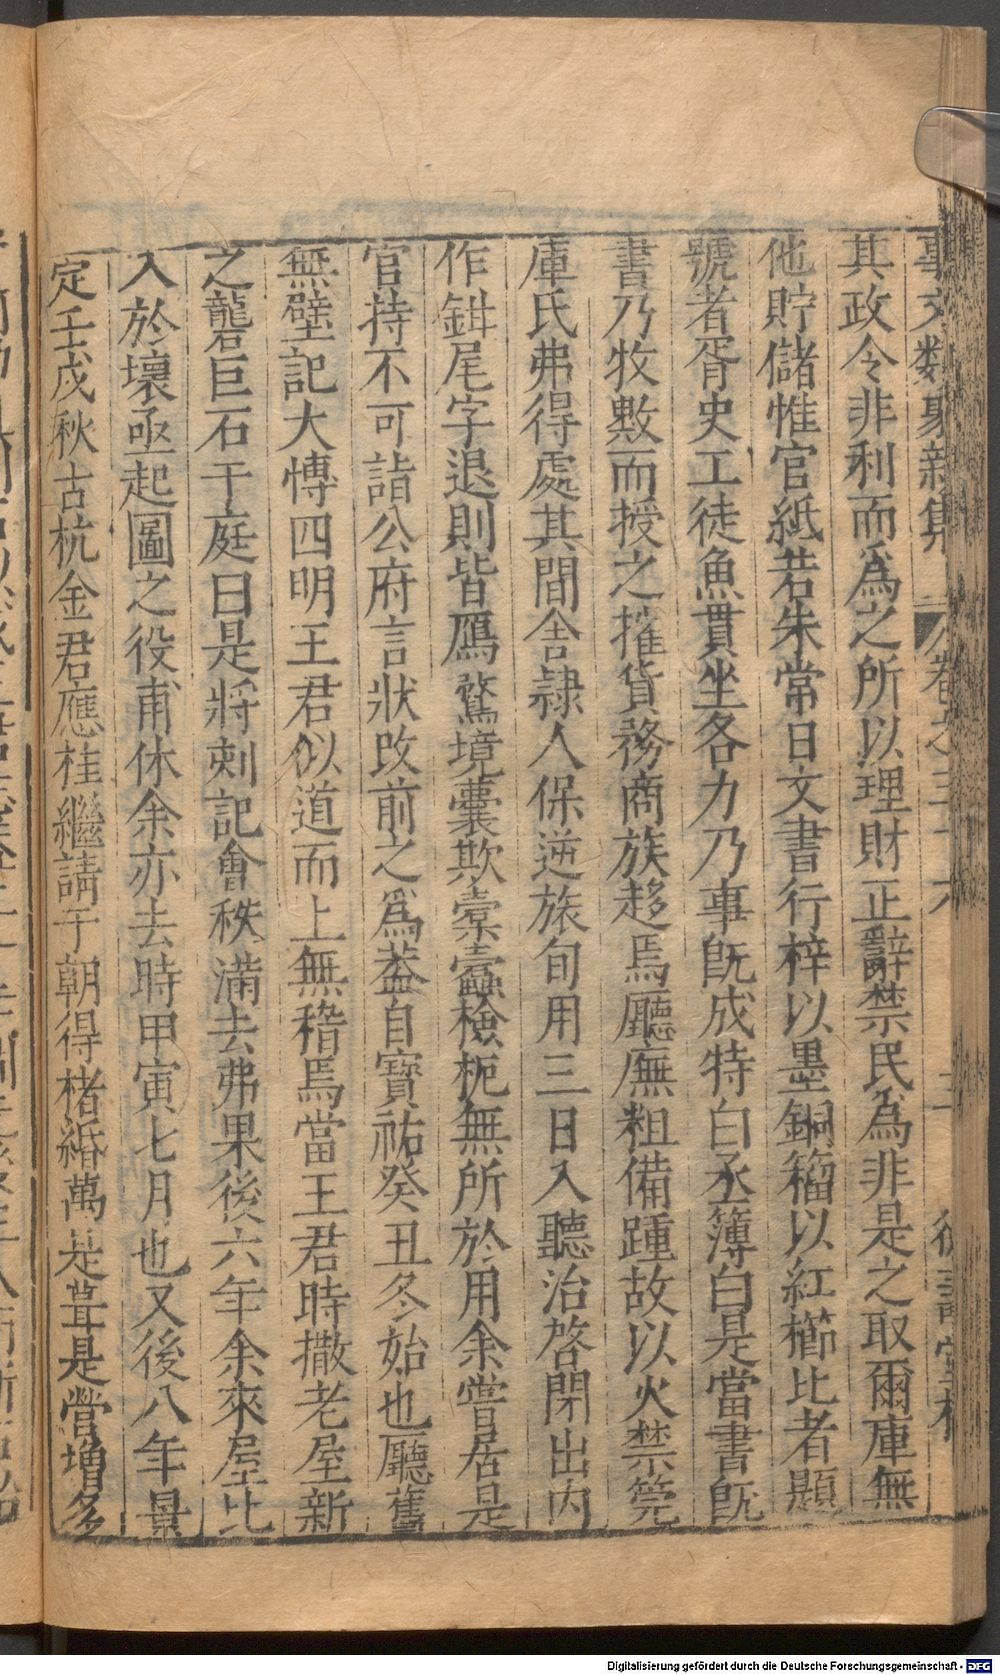 事文類聚新集 卷之三十六 德壽堂梓
其政令非利而爲之所以理財正辭禁民爲非是之取爾庫無
他貯儲惟官紙若朱常日文書行梓以墨銅籀以紅櫛比者顯
號者胥史工徒魚貫坐各力乃事旣成特白丞簿白是當書旣
書乃牧數而授之搉貨務商族趍焉廳廡粗備踵故以火禁筦
庫氏弗得處其間舍隷人保逆旅旬用三日入聽治啓閉出内
作鉗尾字退則皆鴈鶩境囊欺橐蠹檢柅無所於用余嘗居是
官持不可詣公府言狀改前之爲葢自寶祐癸丑冬始也廳舊
無壁記大愽四明王君似道而上無稽焉當王君時撤老屋新
之礱巨石于庭曰是將刺記會秩滿去弗果後六年余來屋比
入於壞亟起圖之役甫休余亦去時甲寅七月也又後八年景
定壬戌秋古杭金君應桂繼請于朝得楮緡萬是葺是營增多
Digitalisierung gefördert durch die Deutsche Forschungsgemeinschaft - DFG